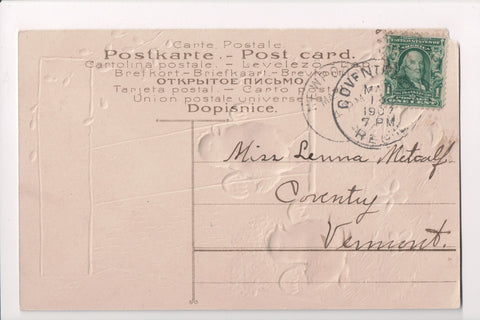 Carte Postale
Postkarte.- Post card.
Cartolina postale. - Levelezo
Brefkort-Briefkaart-Brev
ОТКРЫТОЕ ПИСЬМО
Tarjeta postal.- Carta postal
Union postale universelle
Dopisnice.
COVENT
MA
1907
7 PM
REC
1
Miss Lenna Metcalf
Coventry
Vermont.